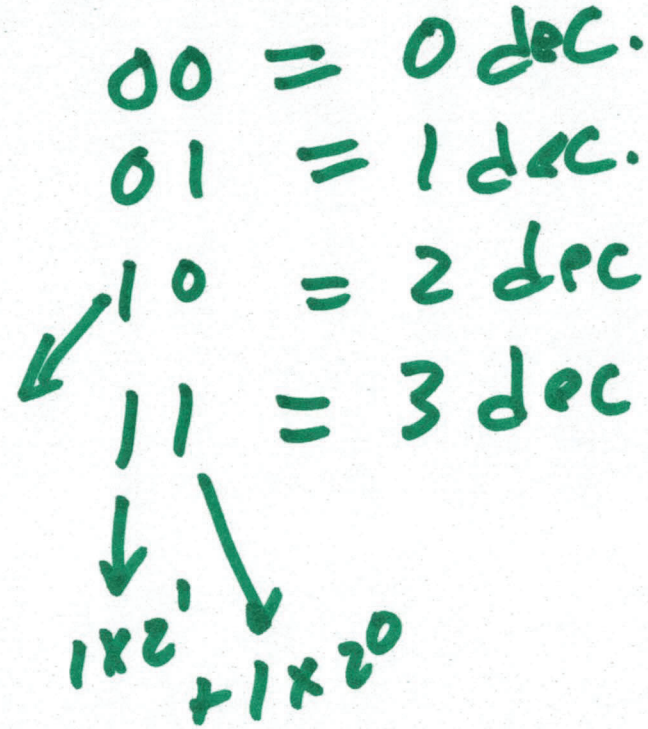 00 = 0 dec.
01 = 1 dec.
10 = 2 dec
11 = 3 dec
1x2¹
+1x2⁰